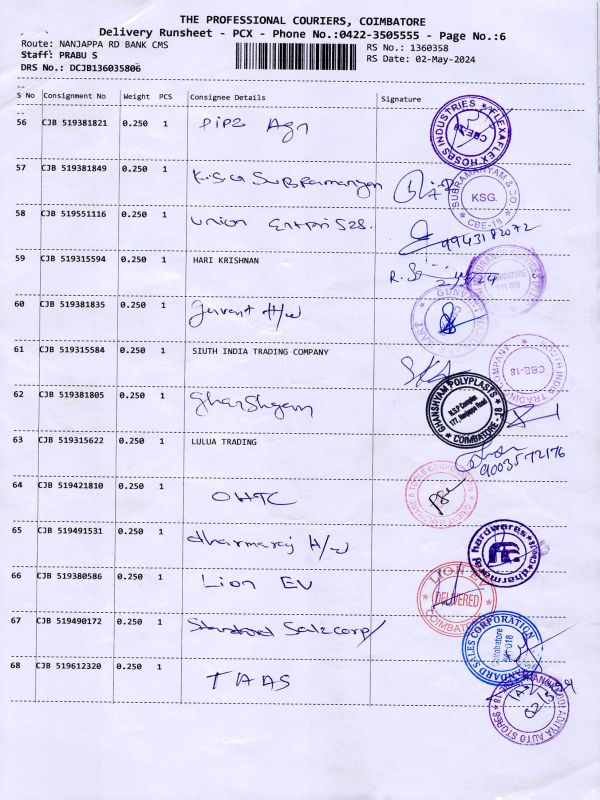 THE PROFESSIONAL COURIERS, COIMBATORE
Delivery Runsheet - PCX - Phone No.:0422-3505555 - Page No.:6
Route: NANJAPPA RD BANK CMS
RS No.: 1360358
Staff: PRABU S
RS Date: 02-May-2024
DRS No.: DCJB136035806
S No Consignment No Weight PCS Consignee Details Signature
56 CJB 519381821 0.250 1 Pipe Agn
FLEXAFLEX HOSES INDUSTRIES CBE-18
57 CJB 519381849 0.250 1 K.S.G
SUBRAMANYAM & CO KSG. CBE-18
58 CJB 519551116 0.250 1 Union
9943182072
59 CJB 519315594 0.250 1 HARI KRISHNAN
60 CJB 519381835 0.250 1 H/w
61 CJB 519315584 0.250 1 SIUTH INDIA TRADING COMPANY
SOUTH INDIA TRADING COMPANY CBE-18
62 CJB 519381805 0.250 1 Ghanshyam
GHANSHYAM POLYPLASTS N.S.P Complex 177, Nanjappa Road COIMBATORE - 18
63 CJB 519315622 0.250 1 LULUA TRADING
9003572176
64 CJB 519421810 0.250 1 OHTC
65 CJB 519491531 0.250 1 dharmaraj H/w
dharmaraj hardwares
66 CJB 519380586 0.250 1 Lion EV
LION EV DELIVERED COIMBATORE
67 CJB 519490172 0.250 1 Standard Salecorp
STANDARD SALES CORPORATION Coimbatore 641 018
68 CJB 519612320 0.250 1 TAAS
ADITYA AUTO STORES